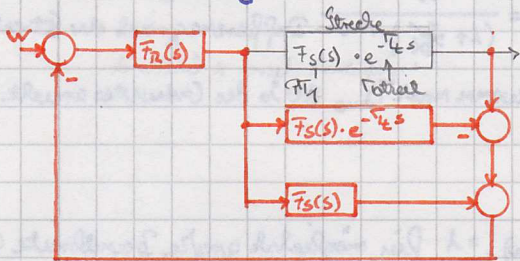 Strecke
w
F_R(s)
F_S(s) · e^{-T_t s}
-
PT1
Totzeit
F_S(s) · e^{-T_t s}
-
F_S(s)